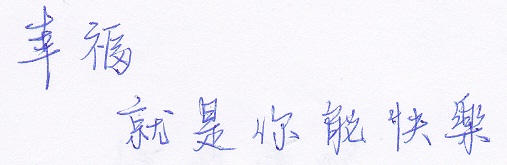 幸福
就是你能快樂